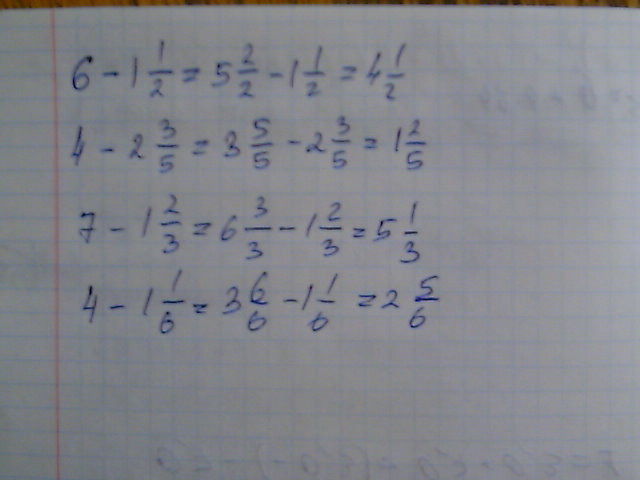 6 - 1 1/2 = 5 2/2 - 1 1/2 = 4 1/2
4 - 2 3/5 = 3 5/5 - 2 3/5 = 1 2/5
7 - 1 2/3 = 6 3/3 - 1 2/3 = 5 1/3
4 - 1 1/6 = 3 6/6 - 1 1/6 = 2 5/6